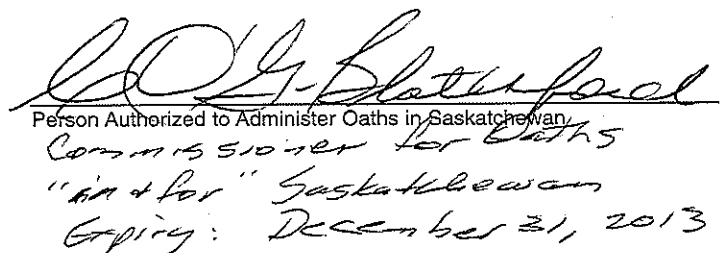 Blatchford
Person Authorized to Administer Oaths in Saskatchewan
Commissioner for Oaths
"in + for" Saskatchewan
Expiry: December 31, 2013